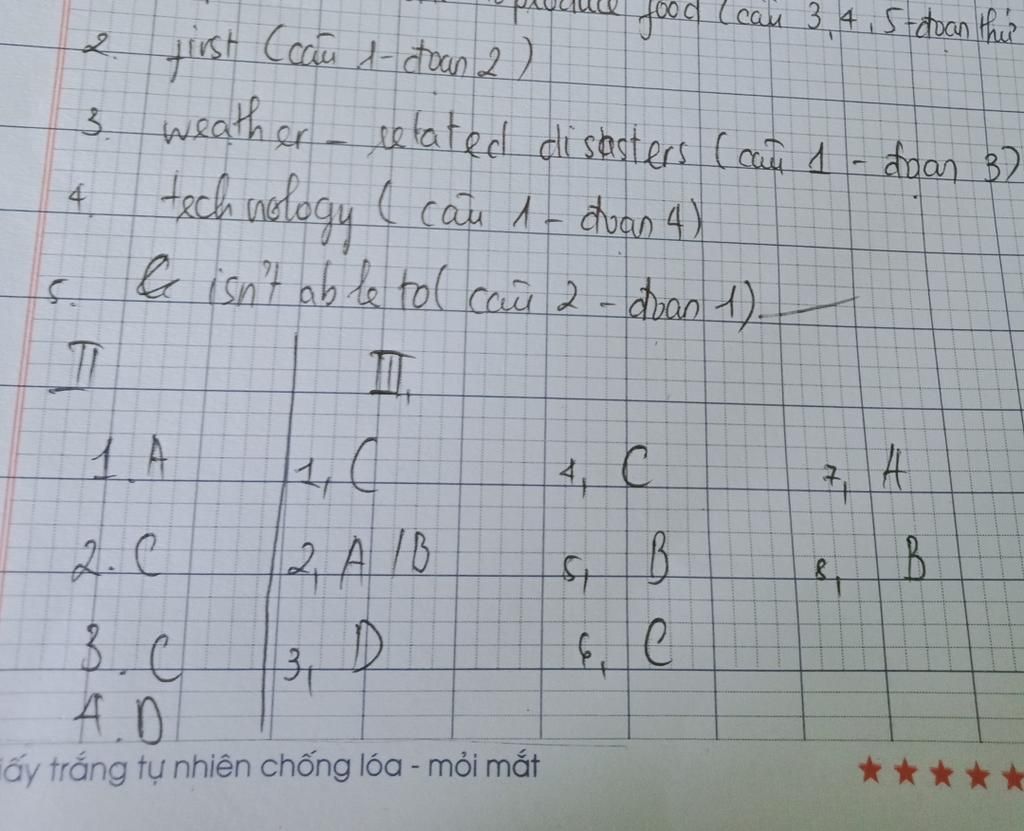 produce food (câu 3, 4, 5 - đoạn thứ
2. first (câu 1 - đoạn 2)
3. weather - related disasters (câu 1 - đoạn 3)
4. technology (câu 1 - đoạn 4)
5. isn't able to (câu 2 - đoạn 1)
II III,
1. A 1, C 4, C 7, A
2. C 2, A / B 5, B 8, B
3. C 3, D 6, C
4. D
iấy trắng tự nhiên chống lóa - mỏi mắt